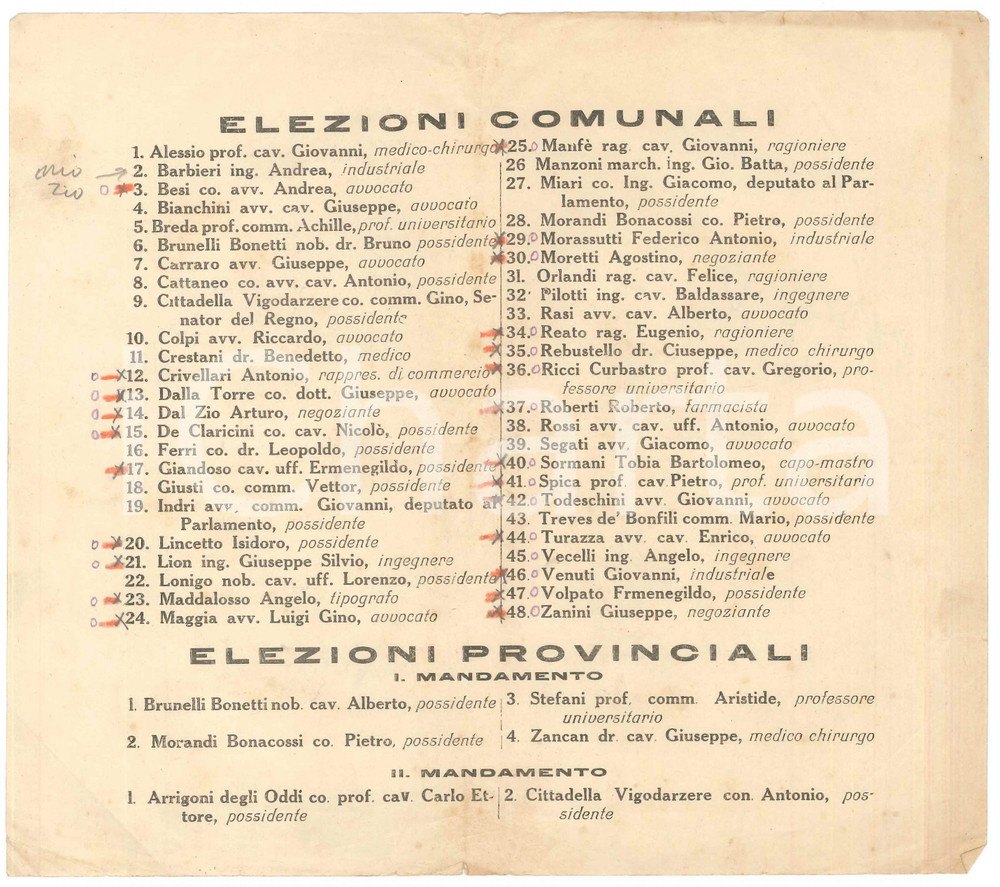 ELEZIONI COMUNALI
1. Alessio prof. cav. Giovanni, medico-chirurgo
mio → 2. Barbieri ing. Andrea, industriale
Zio o x 3. Besi co. avv. Andrea, avvocato
4. Bianchini avv. cav. Giuseppe, avvocato
5. Breda prof. comm. Achille, prof. universitario
6. Brunelli Bonetti nob. dr. Bruno possidente
7. Carraro avv. Giuseppe, avvocato
8. Cattaneo co. avv. cav. Antonio, possidente
9. Cittadella Vigodarzere co. comm. Gino, Se-
nator del Regno, possidente
10. Colpi avv. Riccardo, avvocato
11. Crestani dr. Benedetto, medico
o x 12. Crivellari Antonio, rappres. di commercio
o x 13. Dalla Torre co. dott. Giuseppe, avvocato
o x 14. Dal Zio Arturo, negoziante
o x 15. De Claricini co. cav. Nicolò, possidente
16. Ferri co. dr. Leopoldo, possidente
x 17. Giandoso cav. uff. Ermenegildo, possidente
18. Giusti co. comm. Vettor, possidente
19. Indri avv. comm. Giovanni, deputato al
Parlamento, possidente
o x 20. Lincetto Isidoro, possidente
o x 21. Lion ing. Giuseppe Silvio, ingegnere
22. Lonigo nob. cav. uff. Lorenzo, possidente
o x 23. Maddalosso Angelo, tipografo
o x 24. Maggia avv. Luigi Gino, avvocato
x 25. o Manfè rag. cav. Giovanni, ragioniere
26 Manzoni march. ing. Gio. Batta, possidente
27. Miari co. Ing. Giacomo, deputato al Par-
lamento, possidente
28. Morandi Bonacossi co. Pietro, possidente
x 29. o Morassutti Federico Antonio, industriale
x 30. o Moretti Agostino, negoziante
31. Orlandi rag. cav. Felice, ragioniere
32· Pilotti ing. cav. Baldassare, ingegnere
33. Rasi avv. cav. Alberto, avvocato
x 34. o Reato rag. Eugenio, ragioniere
x 35. o Rebustello dr. Ciuseppe, medico chirurgo
x 36. o Ricci Curbastro prof. cav. Gregorio, pro-
fessore universitario
x 37. o Roberti Roberto, farmacista
38. Rossi avv. cav. uff. Antonio, avvocato
39. Segati avv. Giacomo, avvocato
x 40. o Sormani Tobia Bartolomeo, capo-mastro
x 41. o Spica prof. cav. Pietro, prof. universitario
x 42. o Todeschini avv. Giovanni, avvocato
43. Treves de' Bonfili comm. Mario, possidente
x 44. o Turazza avv. cav. Enrico, avvocato
45. o Vecelli ing. Angelo, ingegnere
x 46. o Venuti Giovanni, industriale
x 47. o Volpato Frmenegildo, possidente
x 48. o Zanini Giuseppe, negoziante
ELEZIONI PROVINCIALI
I. MANDAMENTO
1. Brunelli Bonetti nob. cav. Alberto, possidente
2. Morandi Bonacossi co. Pietro, possidente
3. Stefani prof. comm. Aristide, professore
universitario
4. Zancan dr. cav. Giuseppe, medico chirurgo
II. MANDAMENTO
1. Arrigoni degli Oddi co. prof. cav. Carlo Et-
tore, possidente
2. Cittadella Vigodarzere con. Antonio, pos-
sidente